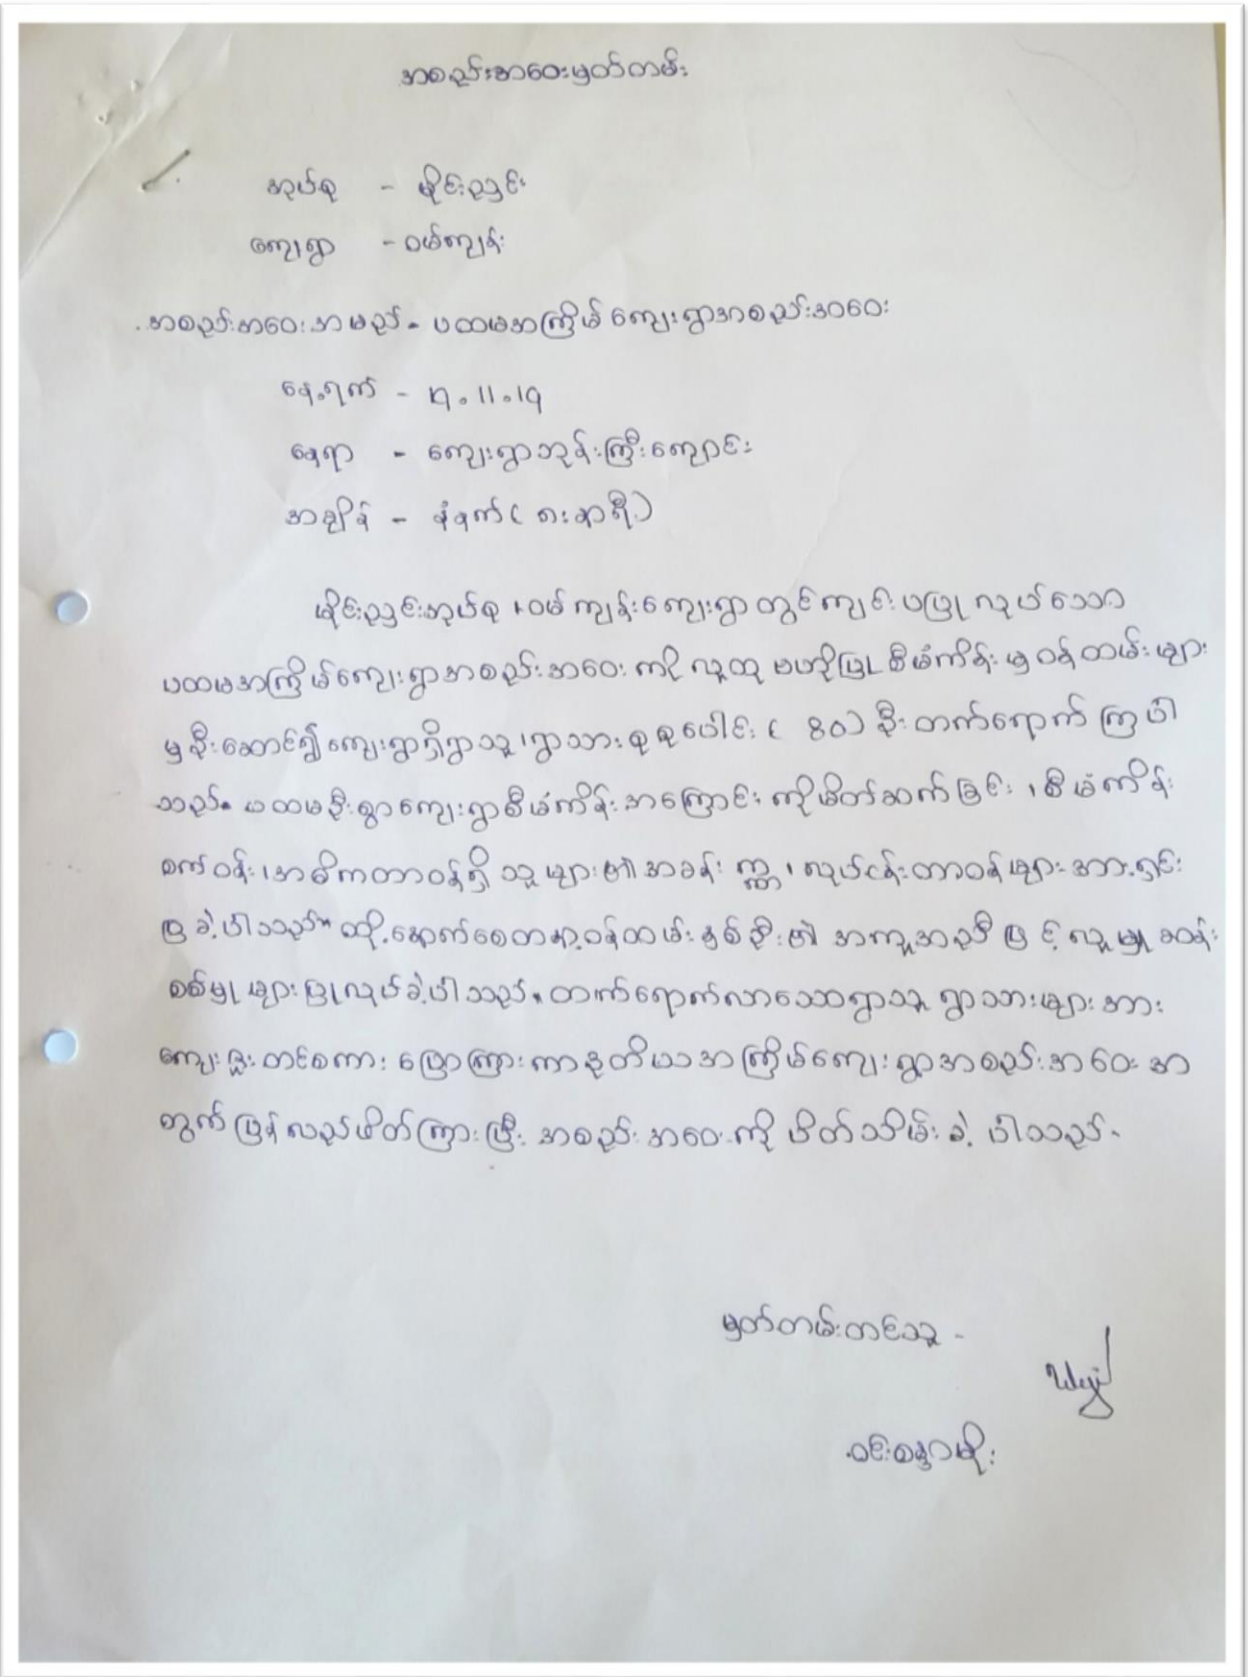 အစည်းအဝေးမှတ်တမ်း
အုပ်စု - မိုင်းညှင်း
ကျေးရွာ - ဝမ်ကျန်း
အစည်းအဝေးအမည် - ပထမအကြိမ် ကျေးရွာအစည်းအဝေး
နေ့ရက် - 7.11.19
နေရာ - ကျေးရွာဘုန်းကြီးကျောင်း
အချိန် - နံနက် ( ၈း နာရီ )
မိုင်းညှင်းအုပ်စု ၊ ဝမ်ကျန်းကျေးရွာတွင်ကျင်းပပြုလုပ်သော
ပထမအကြိမ်ကျေးရွာအစည်းအဝေးကို လူထုဗဟိုပြုစီမံကိန်းမှ ဝန်ထမ်းများ
မှဦးဆောင်၍ကျေးရွာရှိရွာသူ ၊ ရွာသားစုစုပေါင်း ( 80 ) ဦး တက်ရောက်ကြပါ
သည်။ ပထမဦးစွာကျေးရွာစီမံကိန်းအကြောင်းကိုမိတ်ဆက်ခြင်း ၊ စီမံကိန်း
စက်ဝန်း ၊ အဓိကတာဝန်ရှိသူများ၏အခန်းကဏ္ဍ ၊ လုပ်ငန်းတာဝန်များအားရှင်း
ပြခဲ့ပါသည်။ ထို့နောက်စေတနာ့ဝန်ထမ်းနှစ်ဦး၏ အကူအညီဖြင့် လူမှုဆန်း
စစ်မှုများပြုလုပ်ခဲ့ပါသည်။ တက်ရောက်လာသောရွာသူ ရွာသားများအား
ကျေးဇူးတင်စကားပြောကြားကာဒုတိယအကြိမ်ကျေးရွာအစည်းအဝေးအ
တွက်ပြန်လည်ဖိတ်ကြားပြီး အစည်းအဝေးကို ပိတ်သိမ်းခဲ့ပါသည်။
မှတ်တမ်းတင်သူ -
ဝင်းစန္ဒာမိုး